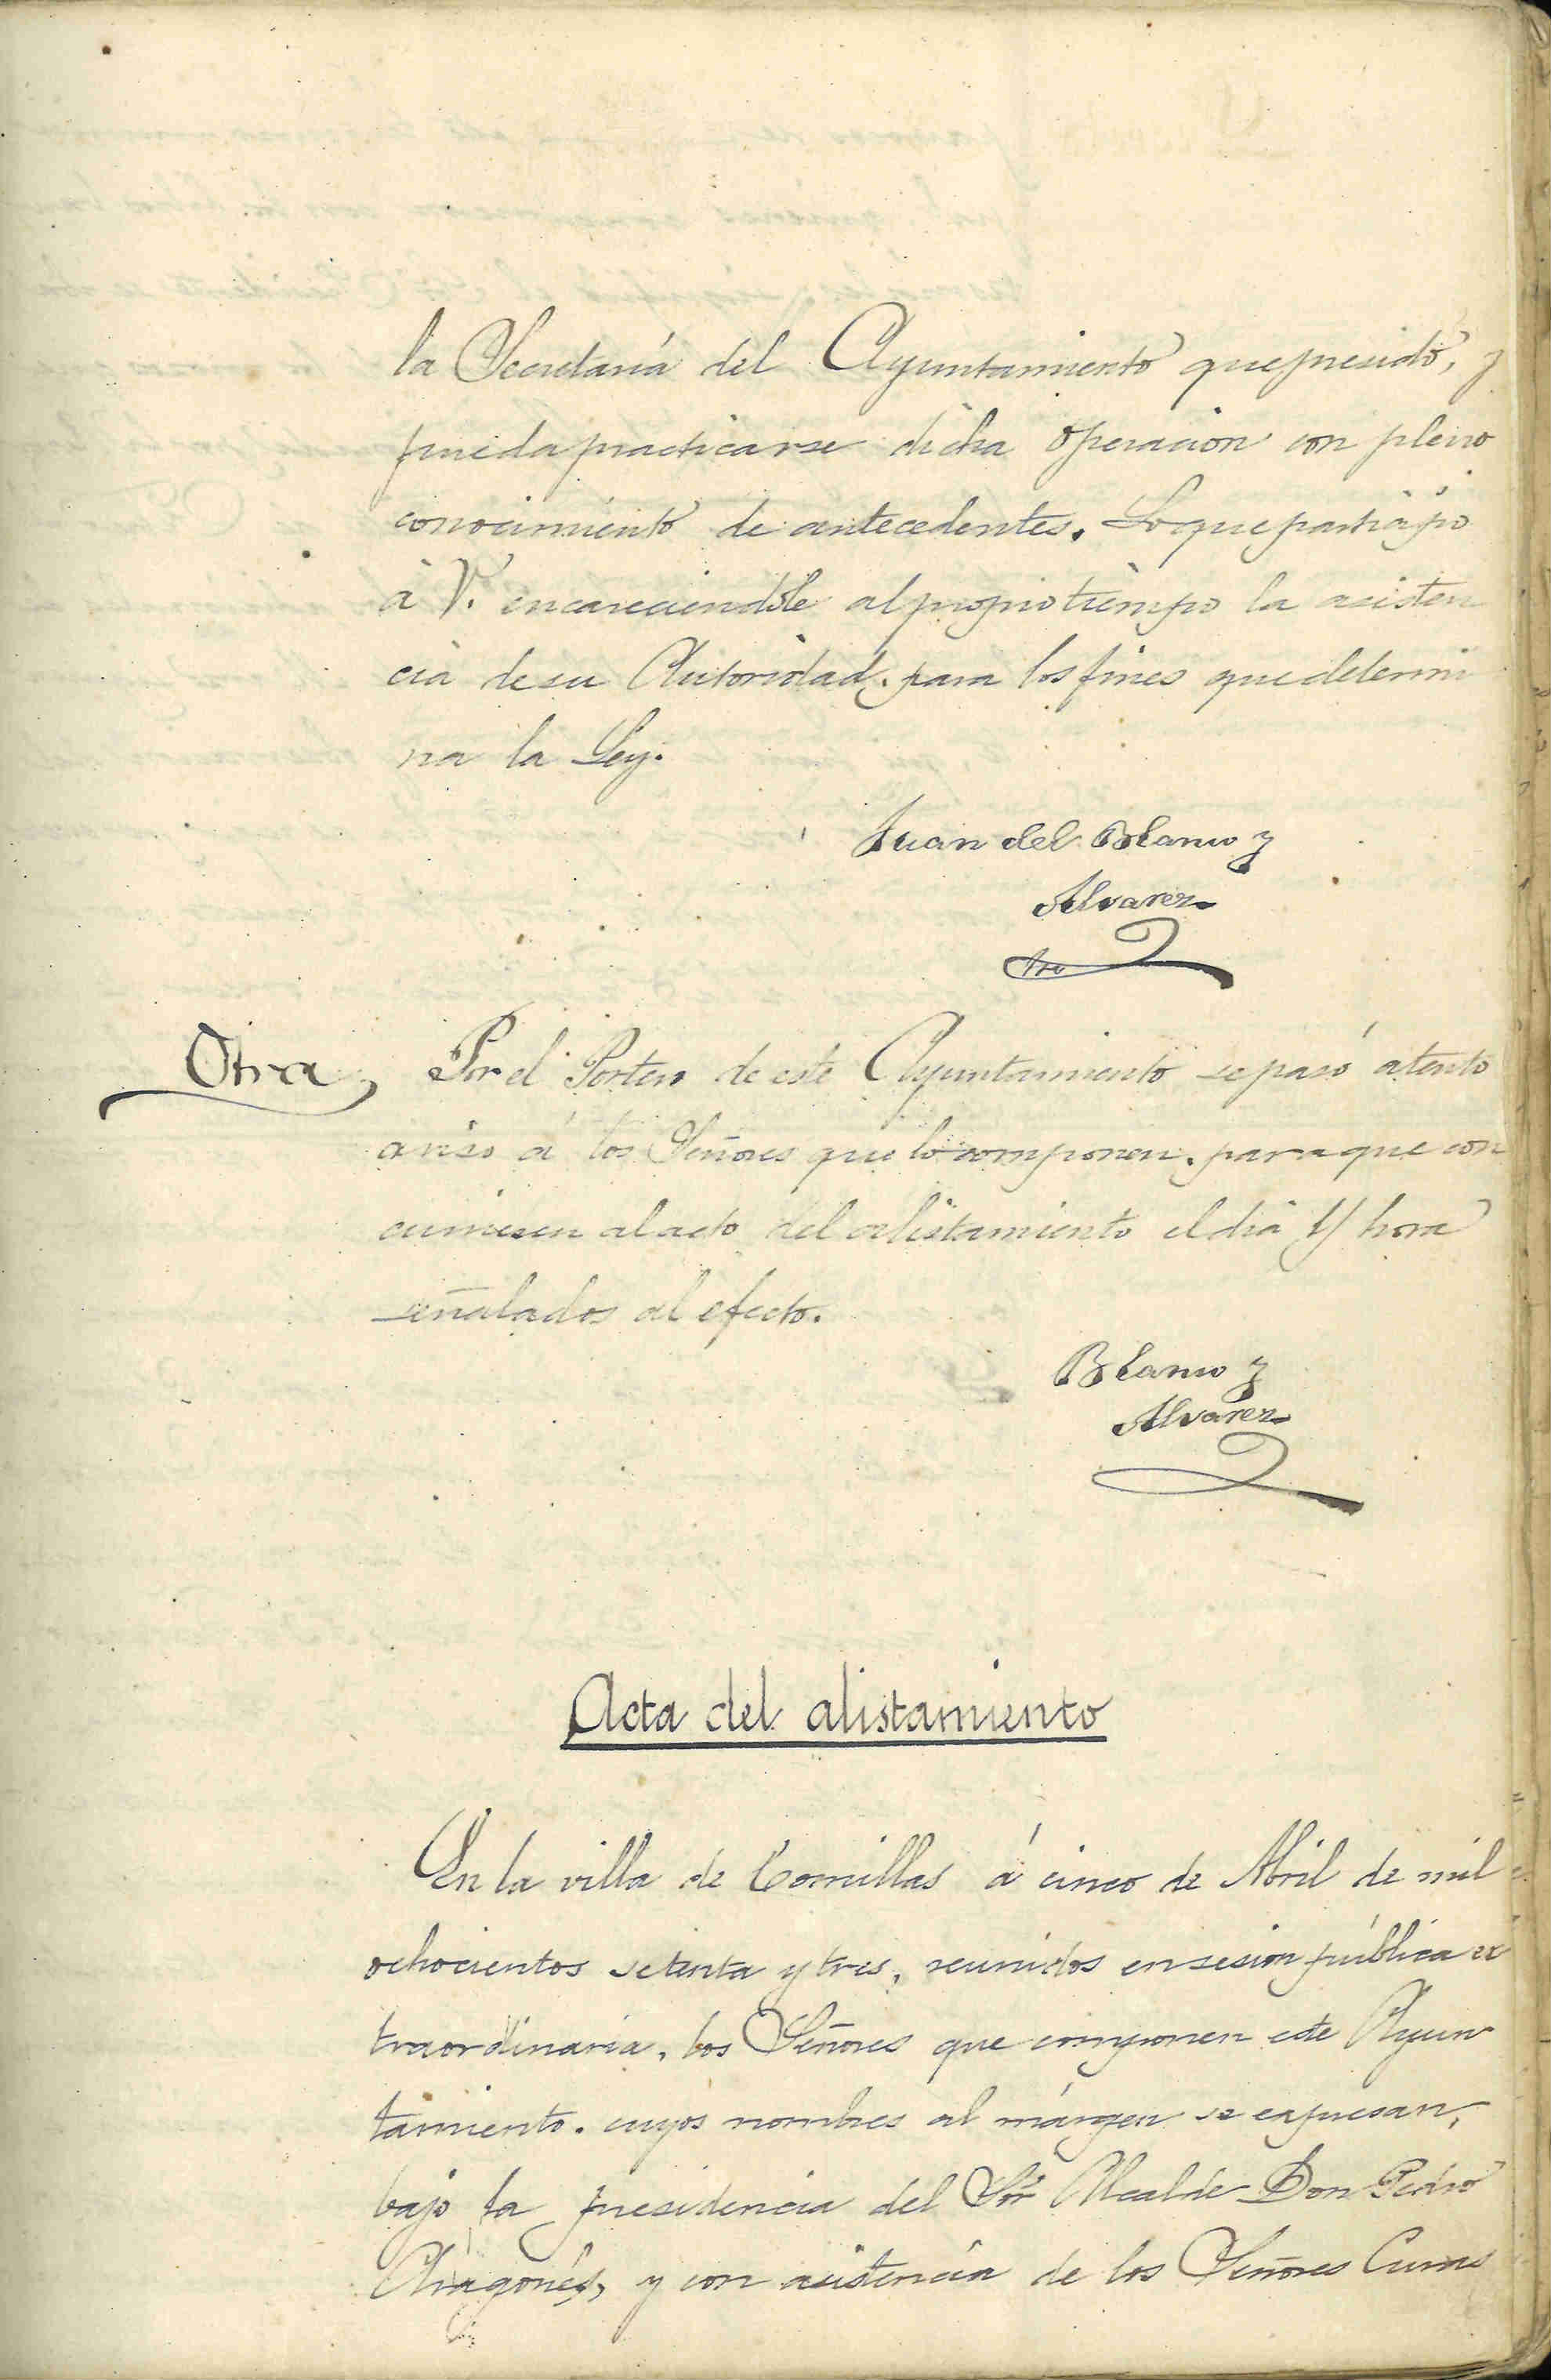 la Secretaría del Ayuntamiento que presido, y
pueda practicarse dicha operacion con pleno
conocimiento de antecedentes. Lo que participo
á V. encareciendole al propio tiempo la asisten
cia de su Autoridad, para los fines que determi
na la Ley.
Juan del Blanco y
Alvarez
Srio
Otra, Por el Portero de este Ayuntamiento se pasó atento
aviso á los Señores que lo componen, para que con
curriesen al acto del alistamiento el dia y hora
señalados al efecto.
Blanco y
Alvarez
Acta del alistamiento
En la villa de Comillas á cinco de Abril de mil
ochocientos setenta y tres, reunidos en sesion pública ex
traordinaria, los Señores que componen este Ayun
tamiento, cuyos nombres al márgen se expresan,
bajo la presidencia del Sor Alcalde Don Pedro
Aragonés, y con asistencia de los Señores Curas